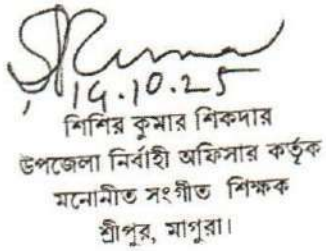 14.10.25
শিশির কুমার শিকদার
উপজেলা নির্বাহী অফিসার কর্তৃক
মনোনীত সংগীত শিক্ষক
শ্রীপুর, মাগুরা।